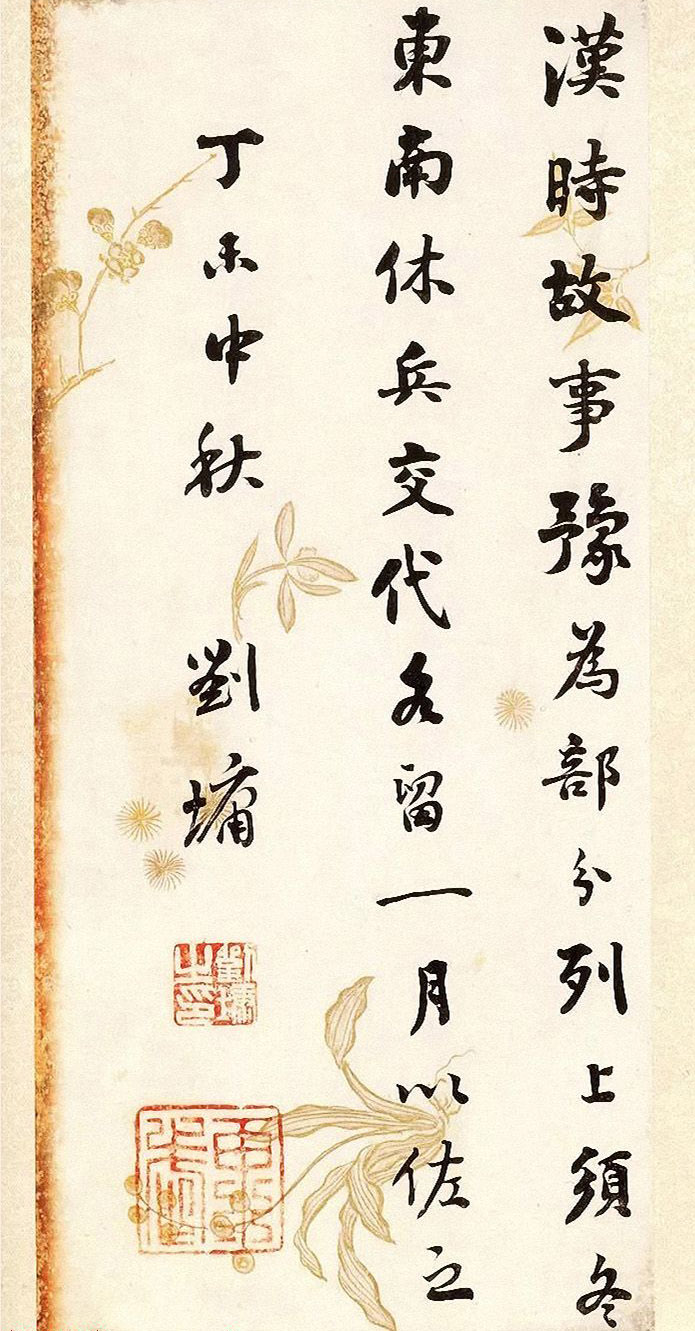 漢時故事豫為部分列上須冬
東南休兵交代各留一月以佐之
丁未中秋
劉墉
劉墉之印